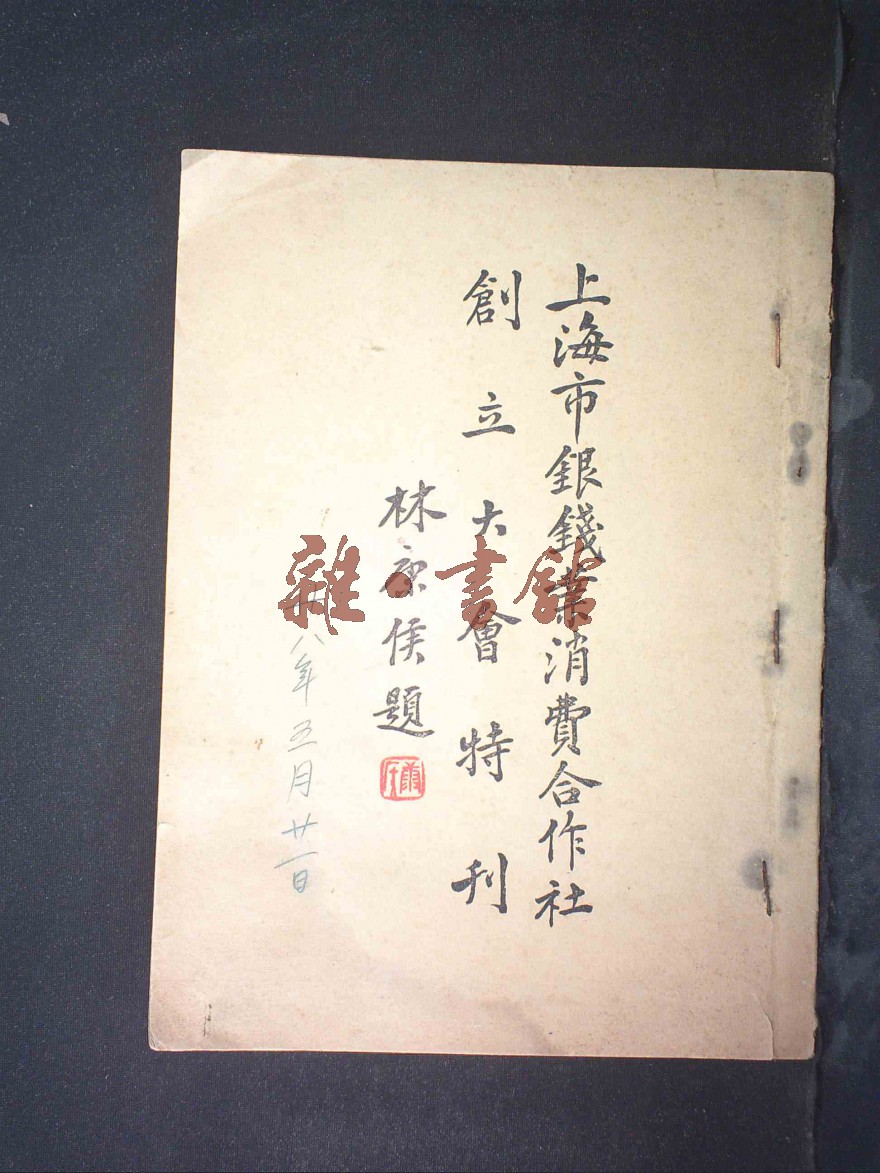 上海市銀錢業消費合作社
創立大會特刊
林康侯題
康侯
廿八年五月廿一日
雜·書館